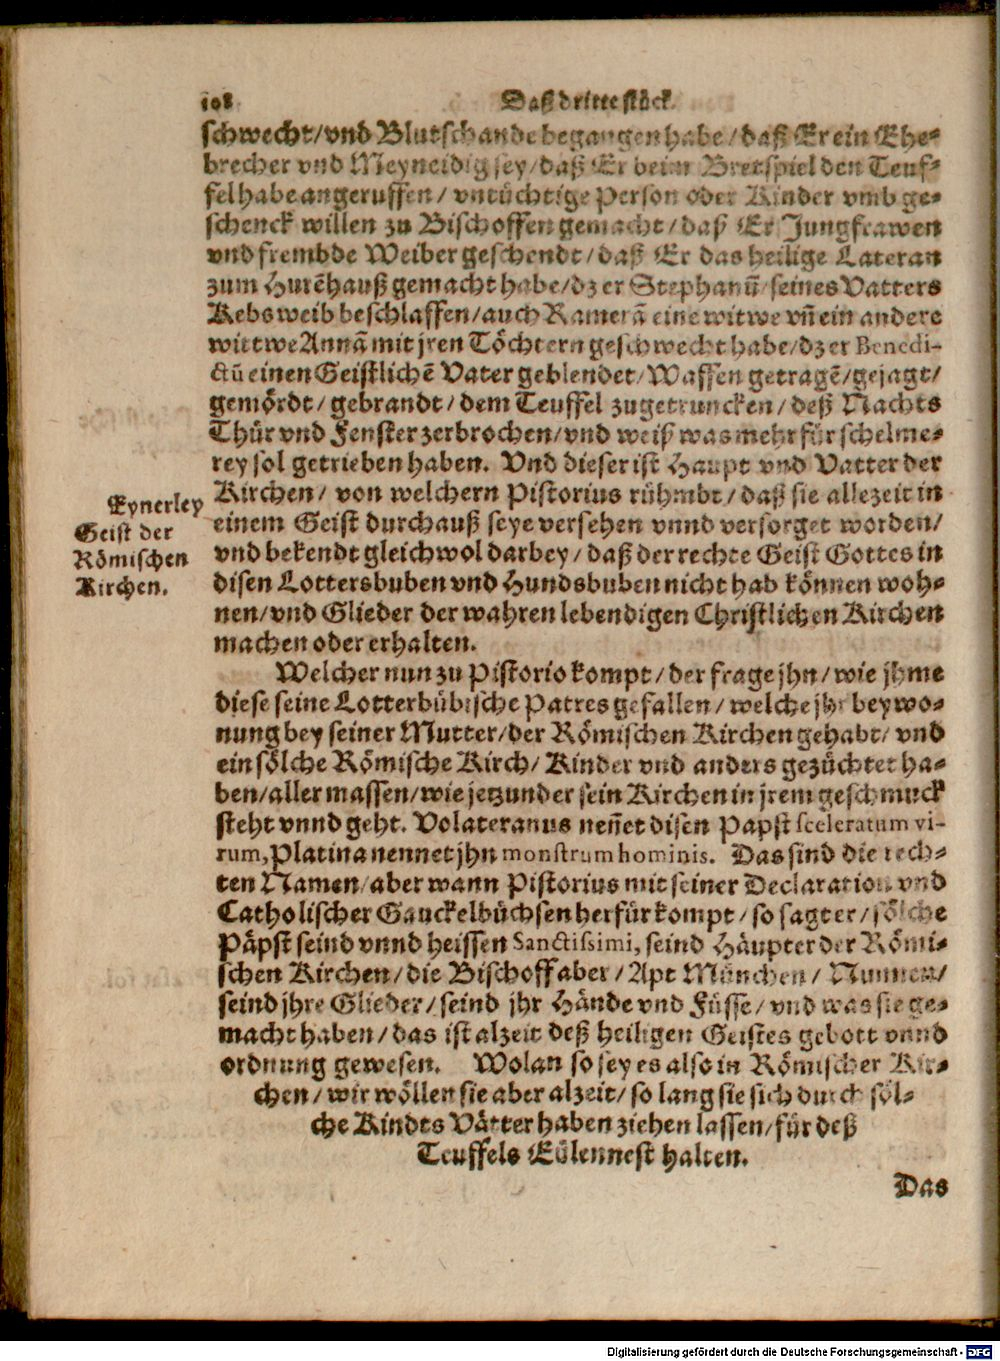 198 Daß dritte stück.
schwecht/vnd Blutschande begangen habe/daß Er ein Ehe-
brecher vnd Meyneidig sey/daß Er beim Bretspiel den Teuf-
fel habe angeruffen/ vntüchtige Person oder Kinder vmb ge-
schenck willen zu Bischoffen gemacht/daß Er Jungfrawen
vnd frembde Weiber geschendt/daß Er das heilige Lateran
zum Hurẽhauß gemacht habe/dz er Stephanũ seines Vatters
Kebsweib beschlaffen/auch Ramerã eine witwe vñ ein andere
wittwe Annã mit jren Töchtern geschwecht habe/dz er Benedi-
ctũ einen Geistlichẽ Vater geblendet/Waffen getragẽ/gejagt/
gemördt/gebrandt/dem Teuffel zugetruncken/deß Nachts
Thür vnd Fenster zerbrochen/vnd weiß was mehr für schelme-
rey sol getrieben haben. Vnd dieser ist Haupt vnd Vatter der
Kirchen/ von welchern Pistorius rühmbt/daß sie allezeit in
einem Geist durchauß seye versehen vnnd versorget worden/
vnd bekendt gleichwol darbey/daß der rechte Geist Gottes in
disen Lottersbuben vnd Hundsbuben nicht hab können woh-
nen/vnd Glieder der wahren lebendigen Christlichen Kirchen
machen oder erhalten.
Eynerley
Geist der
Römischen
Kirchen.
Welcher nun zu Pistorio kompt/der frage jhn/wie jhme
diese seine Lotterbübische Patres gefallen/welche jhr beywo-
nung bey seiner Mutter/der Römischen Kirchen gehabt/ vnd
ein sölche Römische Kirch/Kinder vnd anders gezüchtet ha-
ben/aller massen/wie jetzunder sein Kirchen in jrem geschmuck
steht vnnd geht. Volateranus neñet disen Papst sceleratum vi-
rum, Platina nennet jhn monstrum hominis. Das sind die rech-
ten Namen/aber wann Pistorius mit seiner Declaration vnd
Catholischer Gauckelbüchsen herfür kompt/so sagt er/sölche
Päpst seind vnnd heissen Sanctissimi, seind Häupter der Römi-
schen Kirchen/die Bischoff aber/Apt München/ Nunnen/
seind jhre Glieder/seind jhr Hände vnd Füsse/vnd was sie ge-
macht haben/das ist alzeit deß heiligen Geistes gebott vnnd
ordnung gewesen. Wolan so sey es also in Römischer Kir-
chen/wir wöllen sie aber alzeit/so lang sie sich durch söl-
che Kindts Vätter haben ziehen lassen/für deß
Teuffels Eülennest halten.
Das
Digitalisierung gefördert durch die Deutsche Forschungsgemeinschaft - DFG